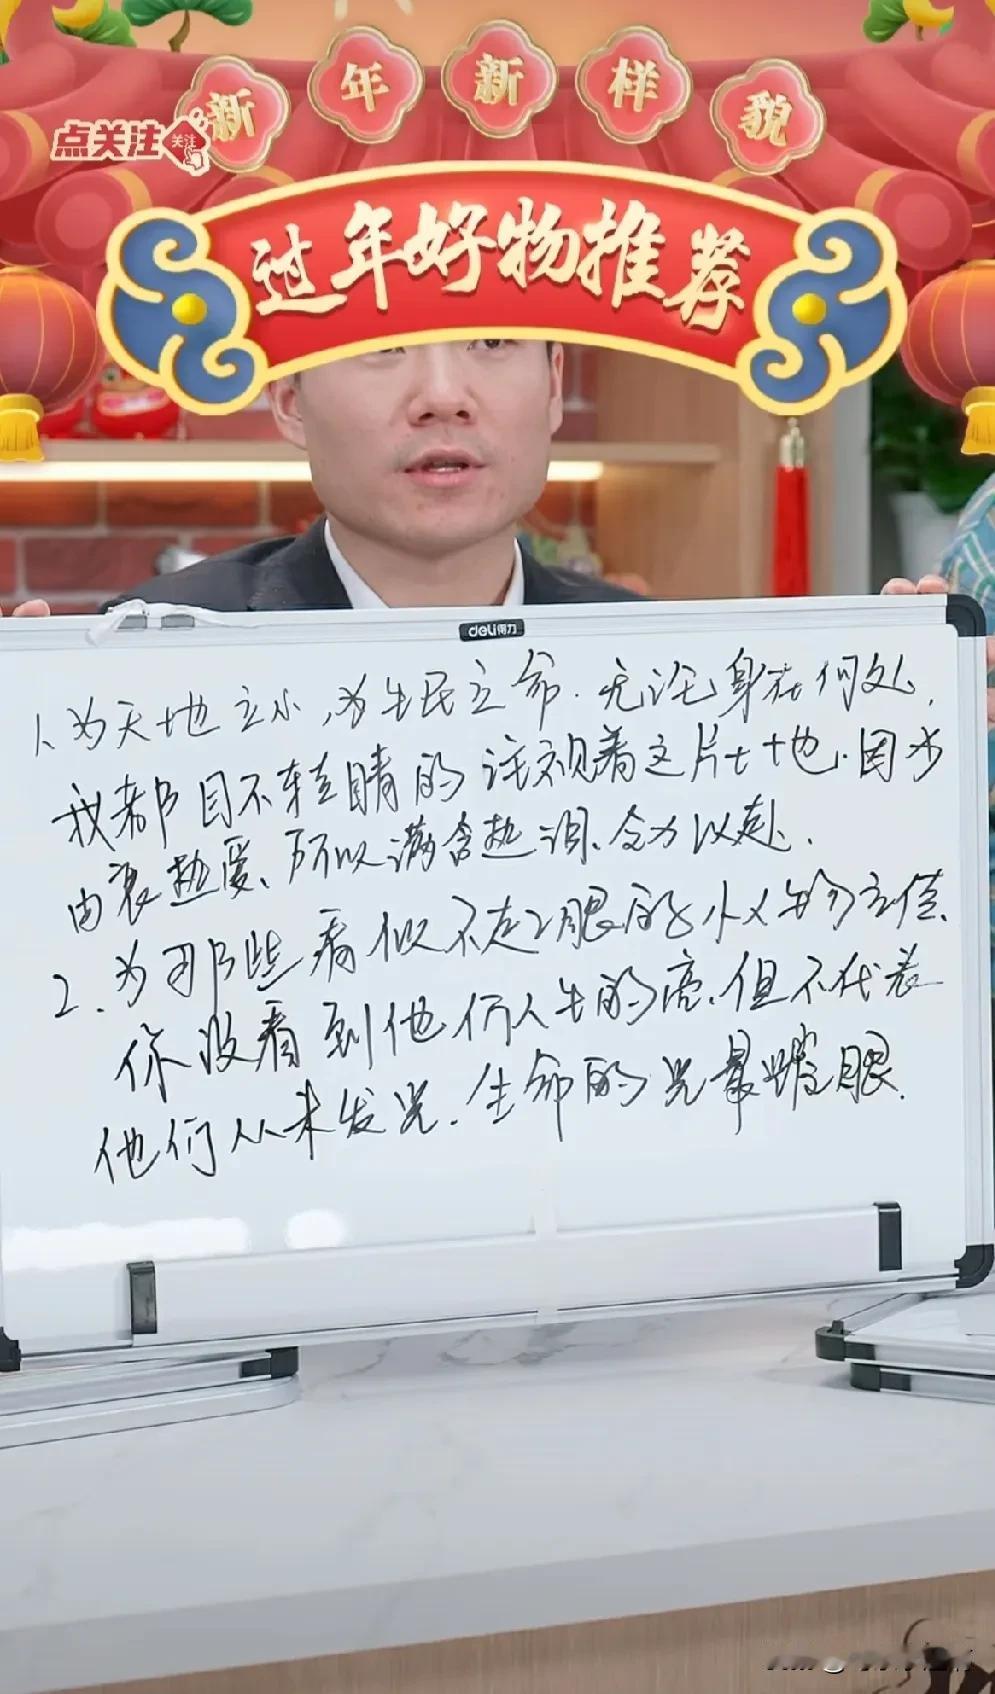 新年新样貌
点关注
关注
过年好物推荐
deli得力
1、为天地立心,为生民立命.无论身在何处,
我都目不转睛的注视着这片土地.因为
由衷热爱、所以满含热泪、全力以赴.
2.为那些看似不起眼的小人物立传、
你没看到他们人生的亮.但不代表
他们从未发光.生命的光最耀眼.